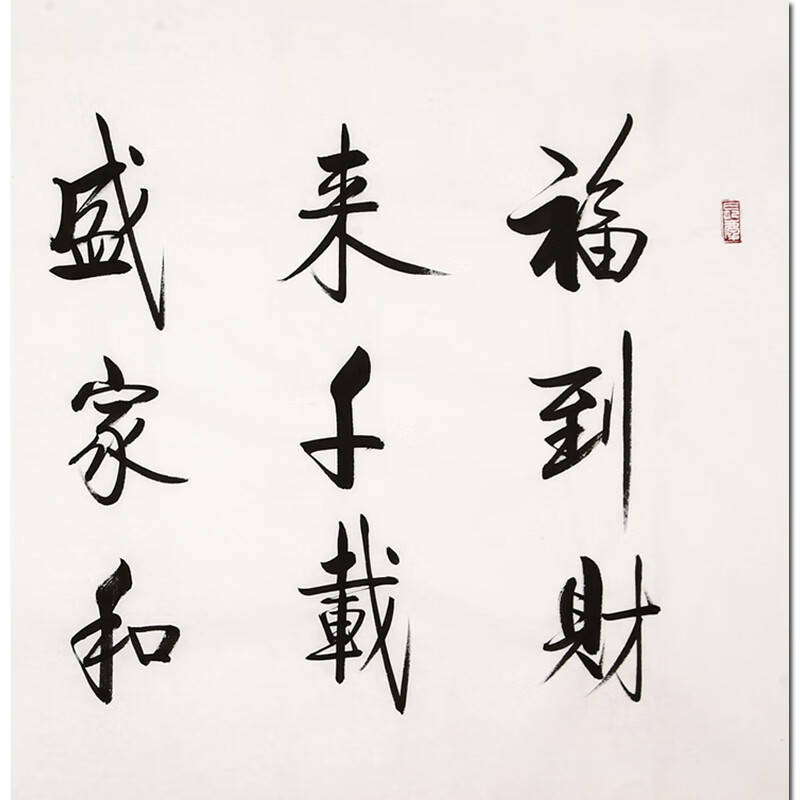 福到財
来千載
盛家和